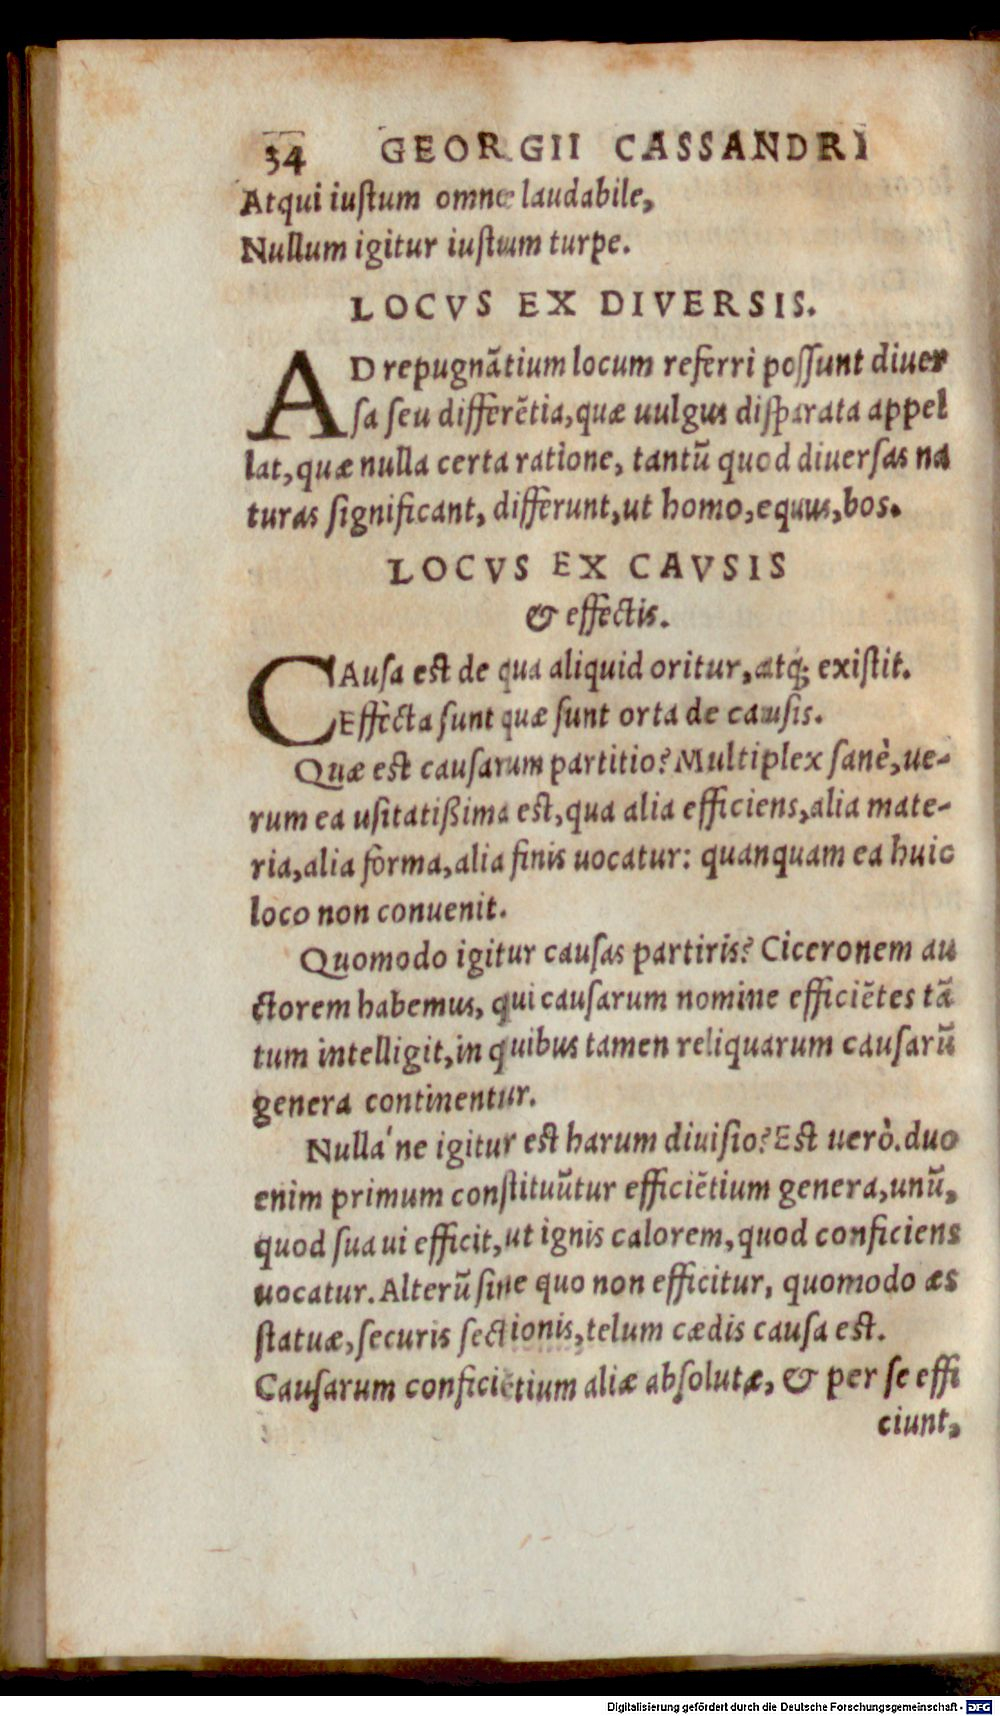 34 GEORGII CASSANDRI
Atqui iustum omne laudabile,
Nullum igitur iustum turpe.
LOCVS EX DIVERSIS.
AD repugnãtium locum referri possunt diuer
sa seu differẽtia, quæ uulgus disparata appel
lat, quæ nulla certa ratione, tantũ quod diuersas na
turas significant, differunt, ut homo, equus, bos.
LOCVS EX CAVSIS
& effectis.
CAusa est de qua aliquid oritur, atq; existit.
Effecta sunt quæ sunt orta de causis.
Quæ est causarum partitio? Multiplex sanè, ue-
rum ea usitatißima est, qua alia efficiens, alia mate-
ria, alia forma, alia finis uocatur: quanquam ea huic
loco non conuenit.
Quomodo igitur causas partiris? Ciceronem au
ctorem habemus, qui causarum nomine efficiẽtes tã
tum intelligit, in quibus tamen reliquarum causarũ
genera continentur.
Nulla'ne igitur est harum diuisio? Est uerò. duo
enim primum constituũtur efficiẽtium genera, unũ,
quod sua ui efficit, ut ignis calorem, quod conficiens
uocatur. Alterũ sine quo non efficitur, quomodo æs
statuæ, securis sectionis, telum cædis causa est.
Causarum conficiẽtium aliæ absolutæ, & per se effi
ciunt,
Digitalisierung gefördert durch die Deutsche Forschungsgemeinschaft - DFG